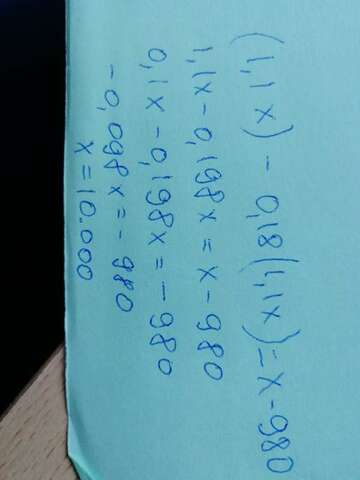 (1,1x) - 0,18(1,1x) = x - 980
1,1x - 0,198x = x - 980
0,1x - 0,198x = - 980
- 0,098x = - 980
x = 10.000